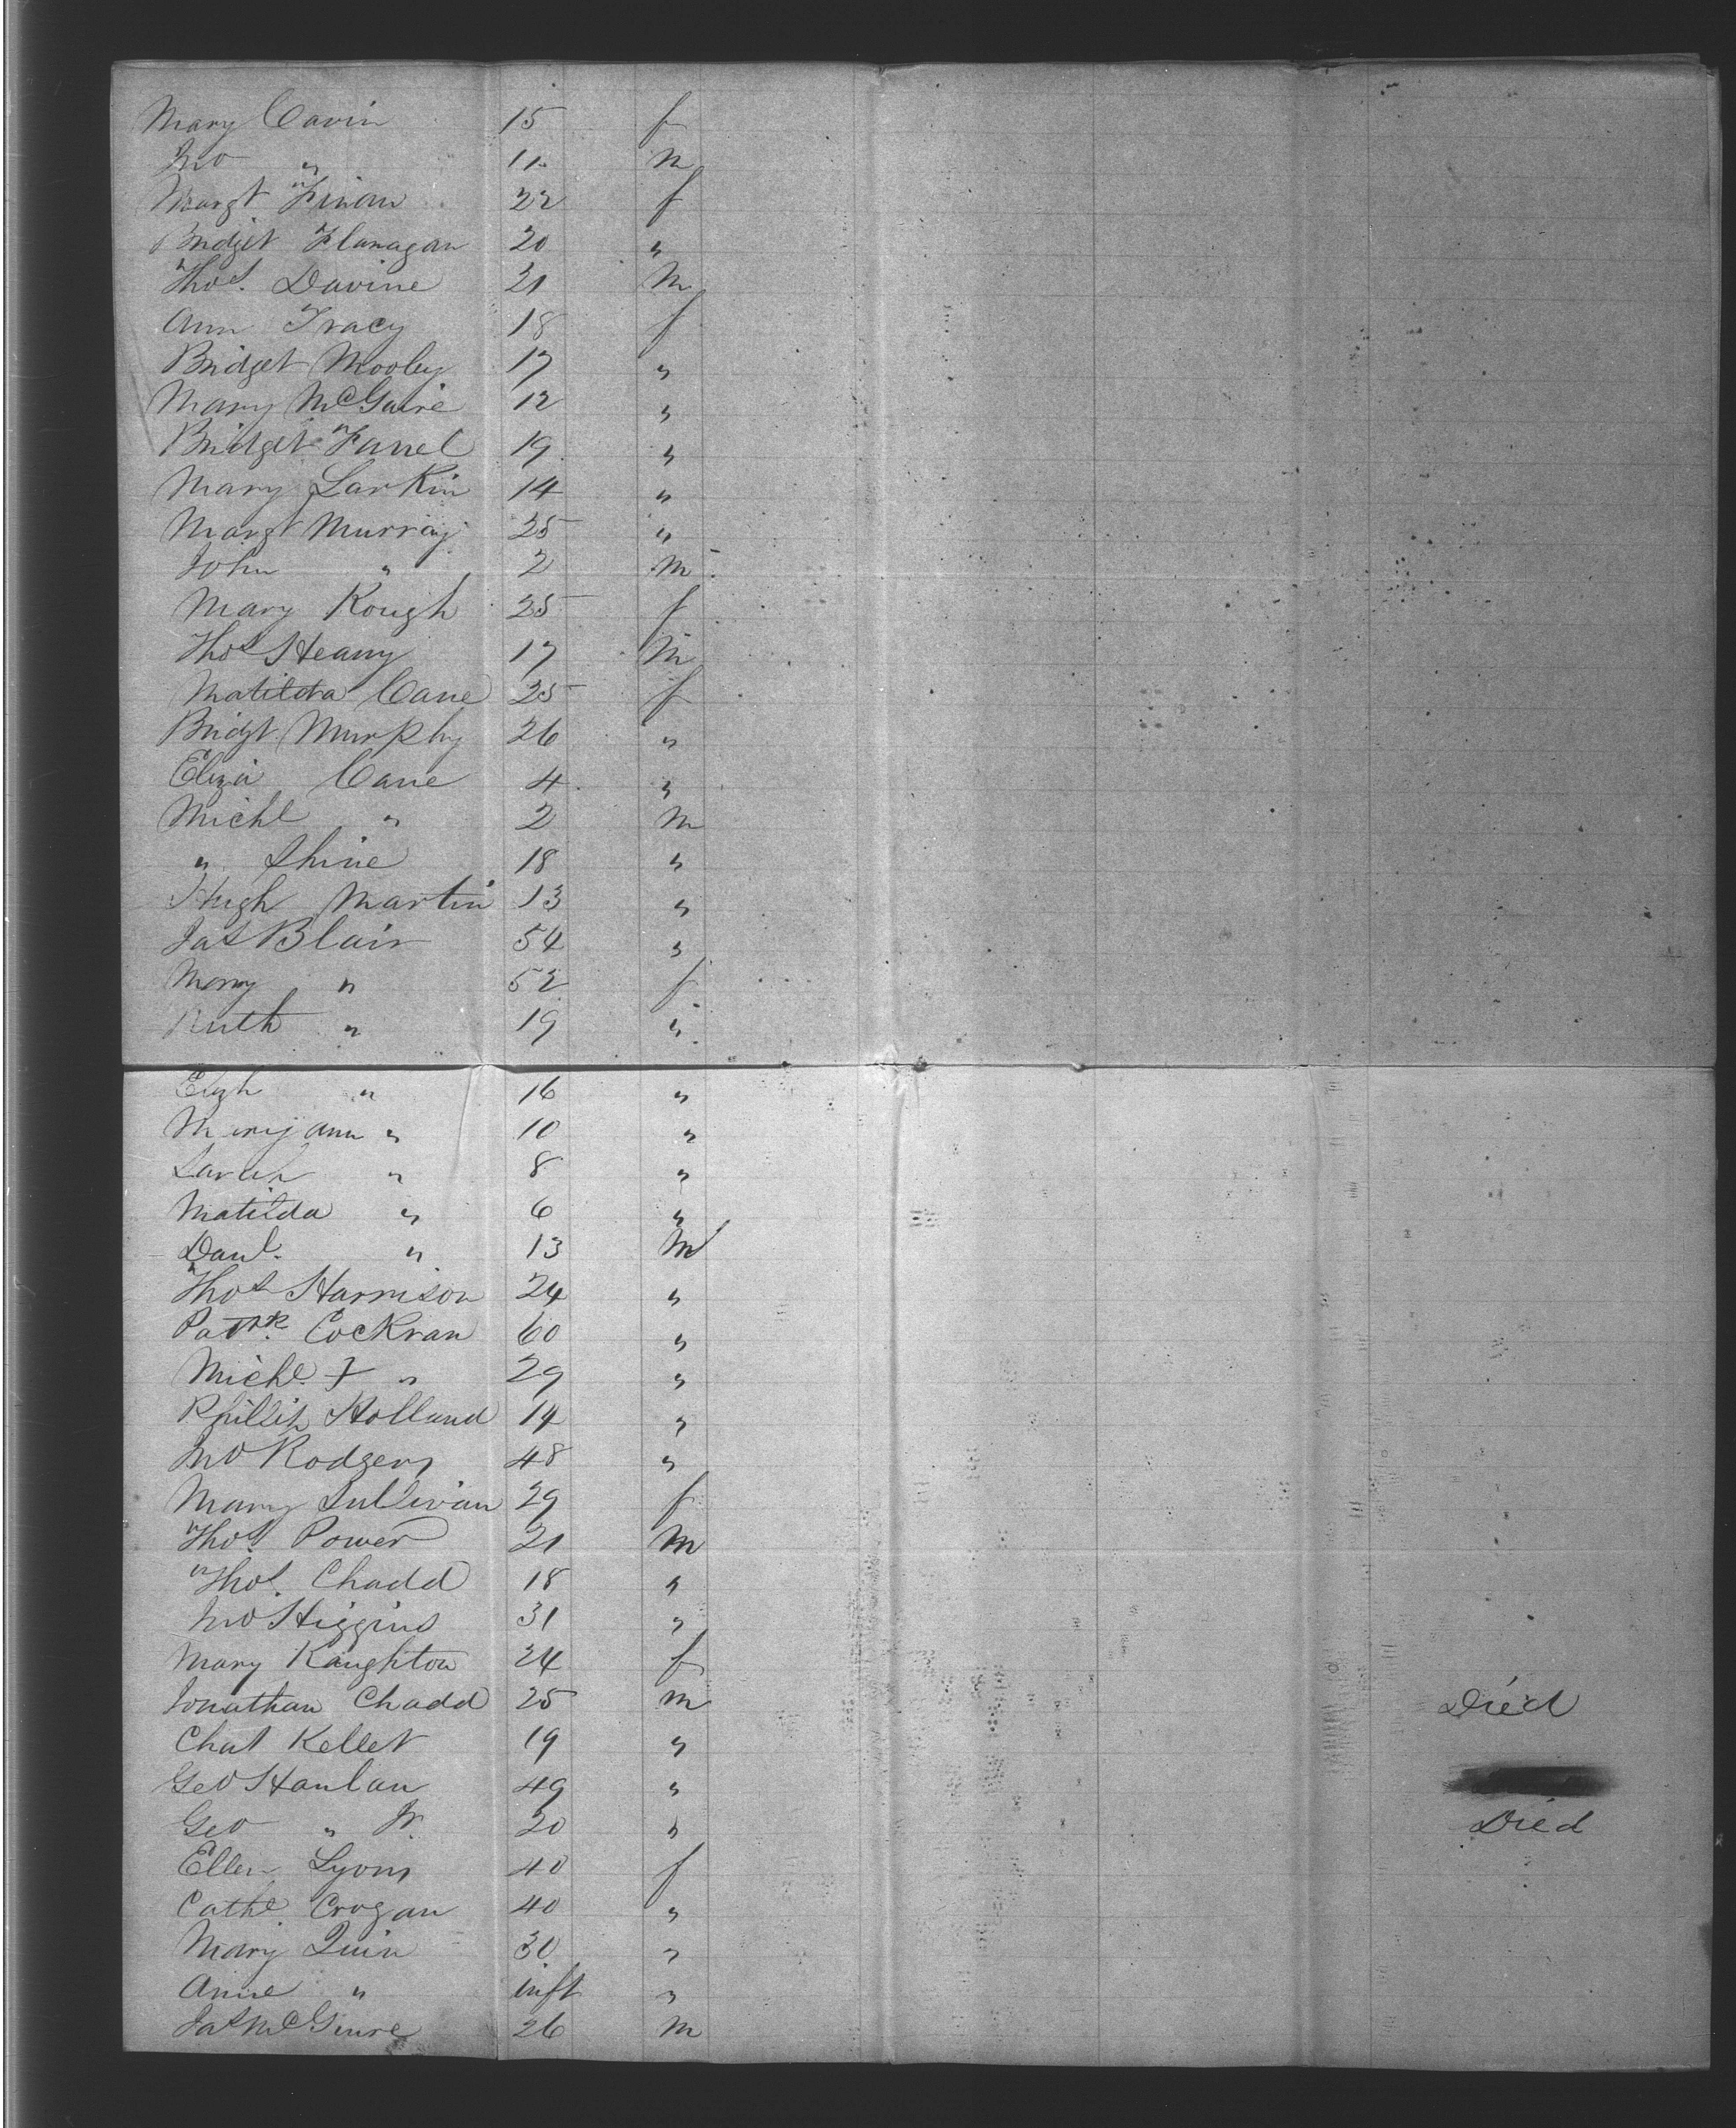 Mary Cavin 15 f
Jno " 11 m
Margt Finan 22 f
Bridget Flanagan 20 "
Thos. Davine 21 m
Ann Tracy 18 f
Bridget Mooley 17 "
Mary McGuire 12 "
Bridget Farrel 19 "
Mary Larkin 14 "
Margt Murray 25 "
John " 2 m
Mary Kough 25 f
Thos Heany 17 m
Matilda Cane 25 f
Bridgt Murphy 26 "
Eliza Cane 4 "
Michl " 2 m
" Shine 18 "
Hugh Martin 13 "
Jas Blair 54 "
Mary " 52 f
Ruth " 19 "
Elizh " 16 "
Mary ann " 10 "
Sarah " 8 "
Matilda " 6 "
Danl. " 13 m
Thos Harrison 24 "
Patrk. Cockran 60 "
Michl. + " 29 "
Phillip Holland 14 "
Jno Rodgers 48 "
Mary Sullivan 29 f
Thos. Power 21 m
Thos. Chadd 18 "
Jno Higgins 31 "
Mary Kaughton 24 f
Jonathan Chadd 25 m Died
Chas Kellet 19 "
Geo Hanlan 49 "
Geo " Jr. 20 " Died
Ellen Lyons 40 f
Cathe. Crogan 40 "
Mary Quin 30 "
Anne " inft "
Jas McGuire 26 m